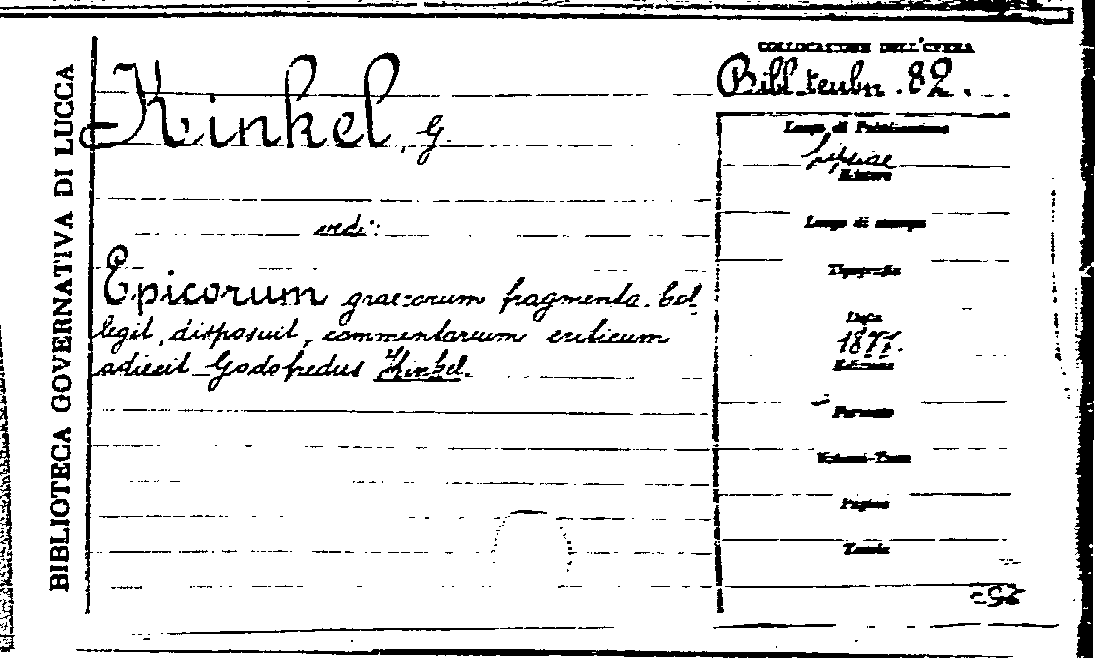 BIBLIOTECA GOVERNATIVA DI LUCCA
Kinkel, G.
vedi:
Epicorum graecorum fragmenta. Col-
legit, disposuit, commentarium criticum
adiecit Godofredus Kinkel.
COLLOCAZIONE DELL'OPERA
Bibl. teubn. 82.
Luogo di Pubblicazione
Lipsiae
Editore
Luogo di stampa
Tipografia
Data
1877.
Edizione
Formato
Volumi-Tomi
Pagine
Tavole